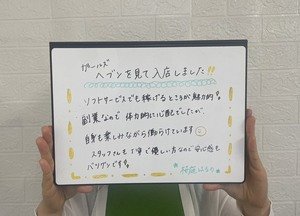 ガールズ
ヘブンを見て入店しました!!
ソフトサービスでも稼げるところが魅力的。
副業なので体力的に心配でしたが、
自身も楽しみながら働けています
スタッフさんも丁寧で優しいるので安心感も
バツグンです。